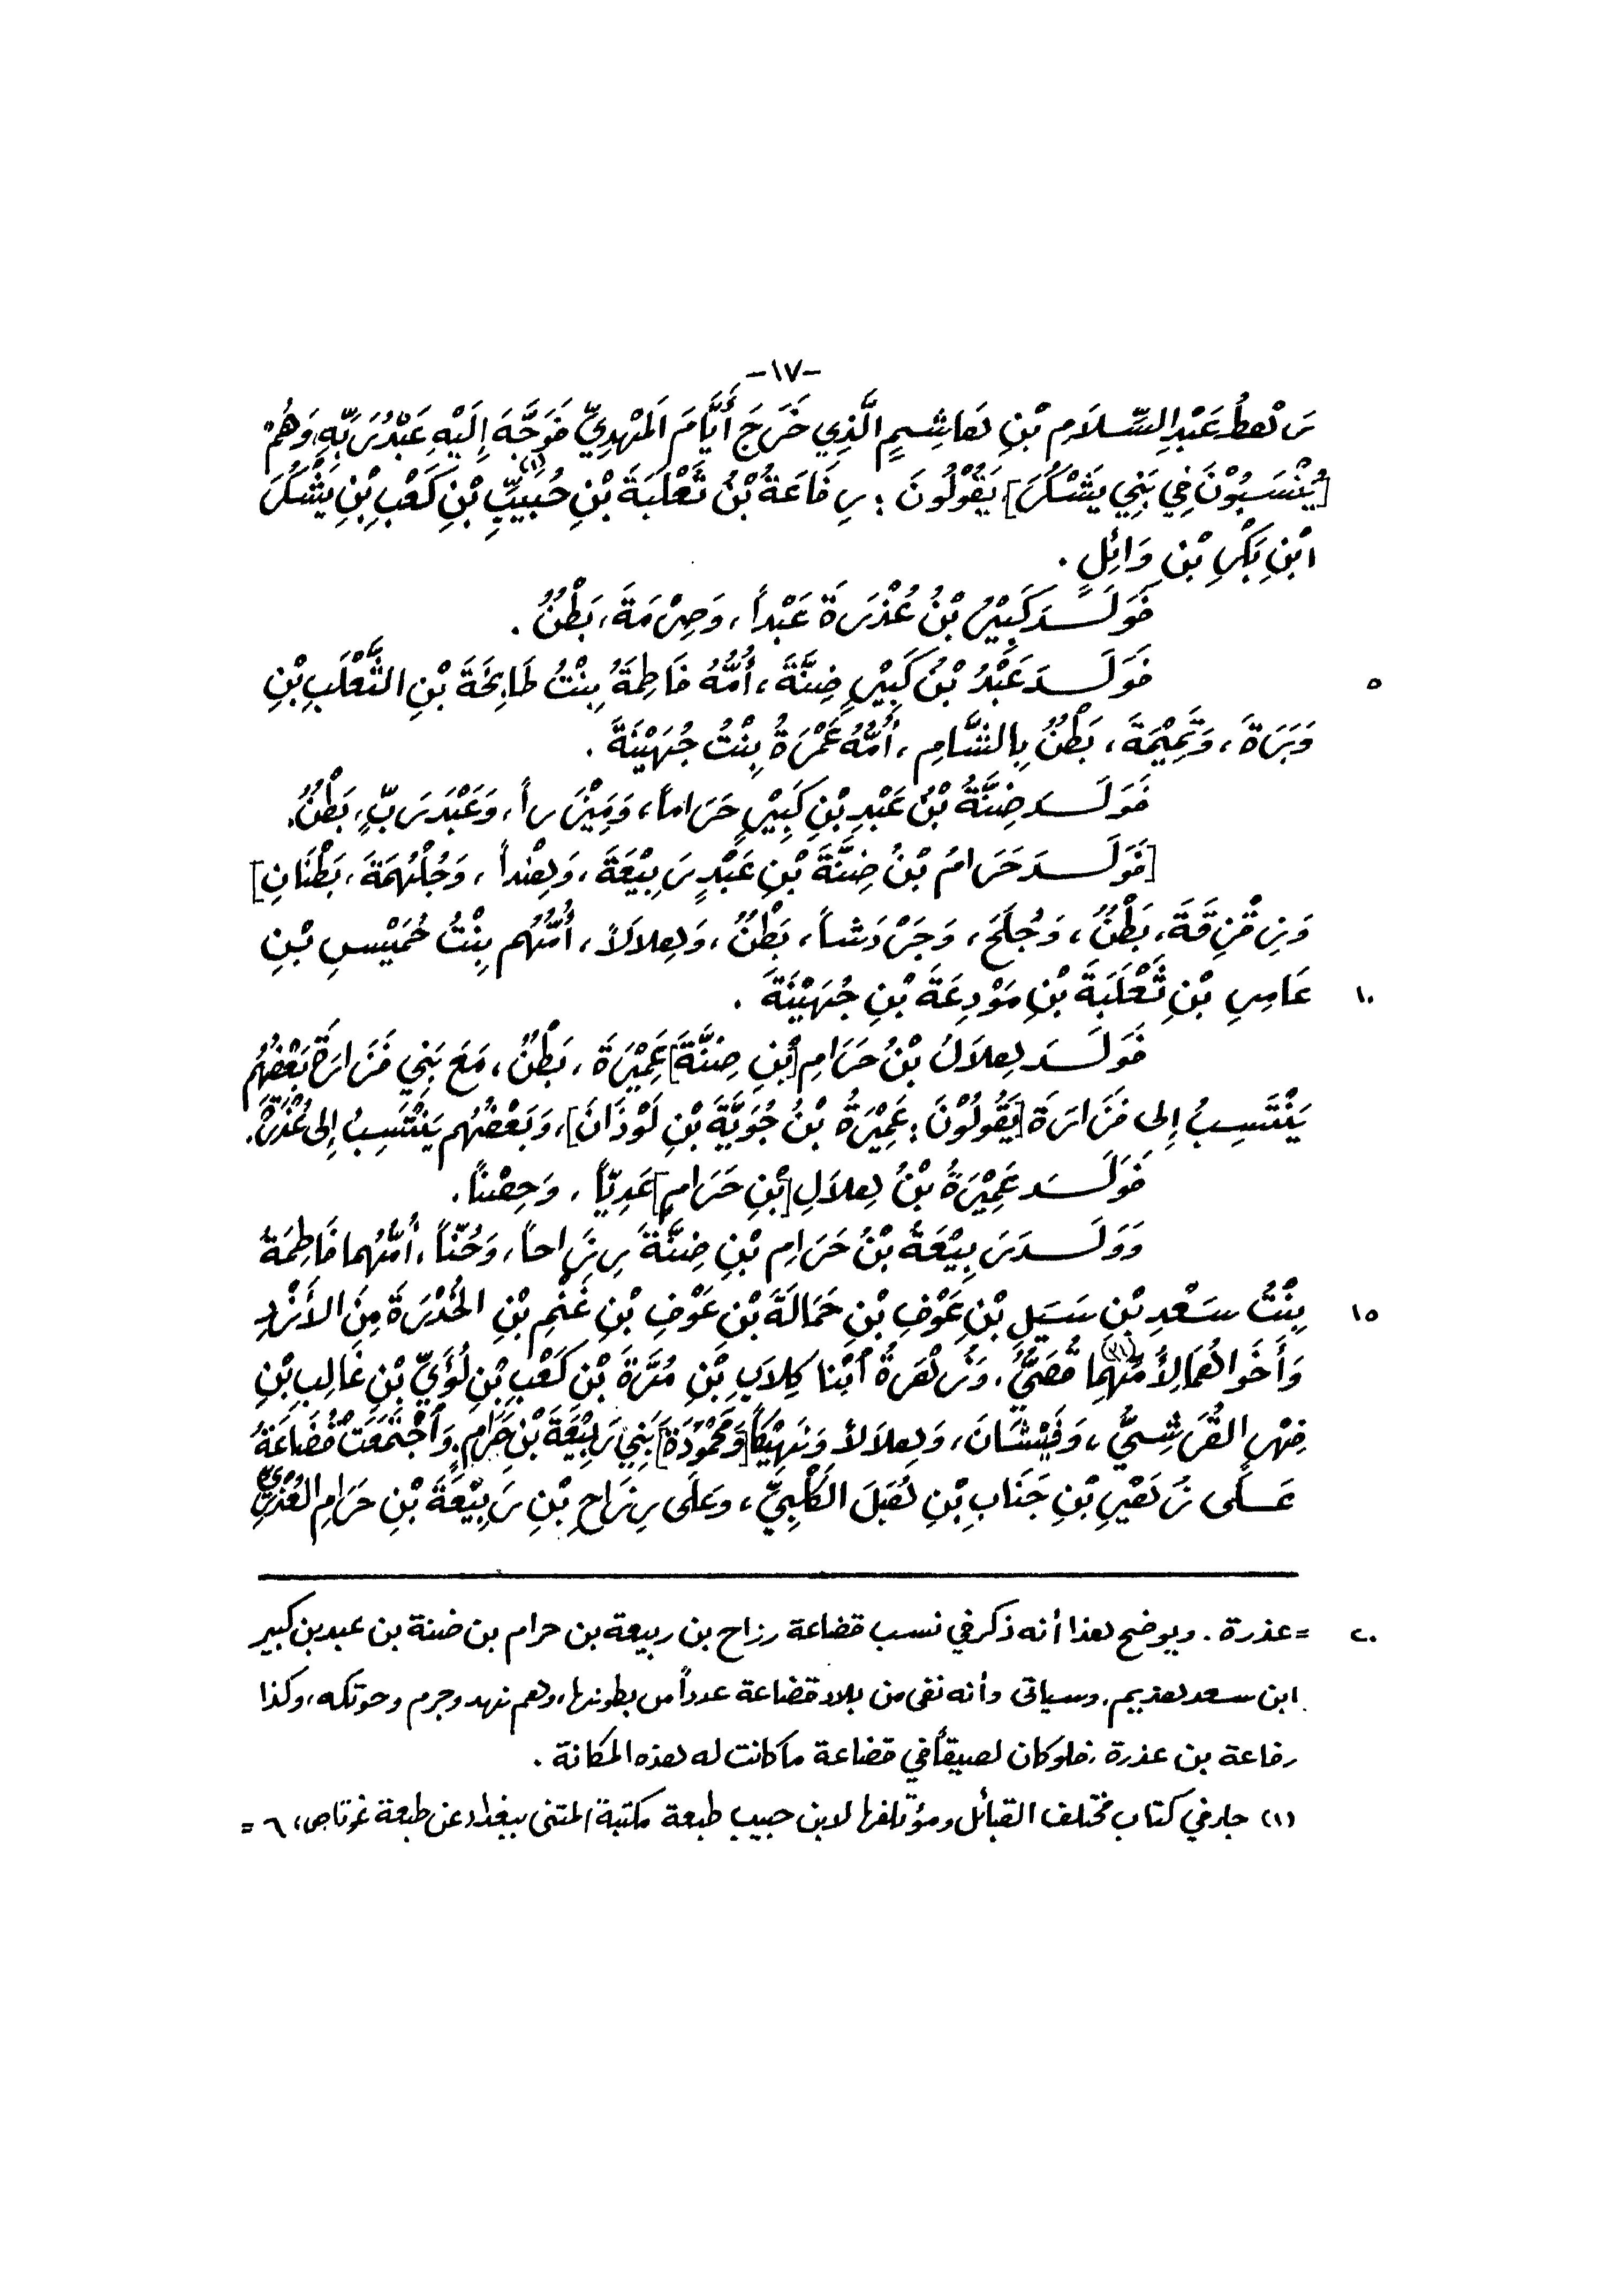 -١٧-
رَهْطُ عَبْدِ السَّلَامِ بْنِ هَاشِمٍ الَّذِي خَرَجَ أَيَّامَ المَهْدِيِّ فَوَجَّهَ إِلَيْهِ عَبْدُ رَبِّهِ، وَهُمْ
[يُنْسَبُوْنَ فِي بَنِي يَشْكُرَ] يَقُوْلُونَ : رِفَاعَةُ بْنُ ثَعْلَبَةَ بْنِ حُبَيِّبِ (١) بْنِ كَعْبِ بْنِ يَشْكُرَ
ابْنِ بَكْرِ بْنِ وَائِلٍ .
فَوَلَـدَ كَبِيْرُ بْنُ عُذْرَةَ عَبْداً، وَصِرْمَةَ، بَطْنٌ .
٥ فَوَلَـدَ عَبْدُ بْنُ كَبِيْرٍ ضِنَّةَ، أُمُّهُ فَاطِمَةُ بِنْتُ طَابِخَةَ بْنِ الثَّعْلَبِ بْنِ
وَبَرَةَ، وَتَمِيْمَةَ، بَطْنٌ بِالشَّامِ، أُمُّهُ عَمْرَةُ بِنْتُ جُهَيْنَةَ .
فَوَلَـدَ ضِنَّةُ بْنُ عَبْدِ بْنِ كَبِيْرٍ حَرَاماً، وَمِيْزَراً، وَعَبْدَ رَبٍّ، بَطْنٌ.
[فَوَلَـدَ حَرَامُ بْنُ ضِنَّةَ بْنِ عَبْدٍ رَبِيْعَةَ، وَهِنْداً، وَجُلْهُمَةَ، بَطْنَانِ]
وَزِقْزِقَةَ، بَطْنٌ، وَجُلَحَ، وَجَرْدَشاً، بَطْنٌ، وَهِلاَلاً، أُمُّهُم بِنْتُ حُمَيْسِ بْنِ
١٠ عَامِرِ بْنِ ثَعْلَبَةَ بْنِ مَوْدِعَةَ بْنِ جُهَيْنَةَ .
فَوَلَـدَ هِلاَلُ بْنُ حَرَامِ [بْنِ ضِنَّةَ] عَمِيْرَةَ، بَطْنٌ، مَعَ بَنِي فَزَارَةَ بَعْضُهُم
يَنْتَسِبُ إِلى فَزَارَةَ [يَقُولُوْنَ : عَمِيْرَةُ بْنُ جُوَيَّةَ بْنِ لَوْذَانَ]، وَبَعْضُهُم يَنْتَسِبُ إِلى عُذْرَةَ.
فَوَلَـدَ عَمِيْرَةُ بْنُ هِلاَلِ [بْنِ حَرَامٍ] عَدِيّاً، وَحِصْناً.
وَوَلَـدَ رَبِيْعَةُ بْنُ حَرَامِ بْنِ ضِنَّةَ رِزَاحاً، وَحُنّاً، أُمُّهُما فَاطِمَةُ
١٥ بِنْتُ سَعْدِ بْنِ سَيَلِ بْنِ عَوْفِ بْنِ حَمَالَةَ بْنِ عَوْفِ بْنِ غَنْمِ بْنِ الخُدْرَةِ مِنَ الأَزْدِ
وَأَخَوَاهُمَا لِأُمِّهِما (٢) قُصَيٌّ، وَزُهْرَةُ ابْنا كِلاَبِ بْنِ مُرَّةَ بْنِ كَعْبِ بْنِ لُؤَيِّ بْنِ غَالِبِ بْنِ
فِهْرٍ القُرَشِيُّ، وَفَيْشَانَ، وَهِلاَلاً وَنَهِيْكاً [وَمَحْمُوْدَةَ] بَنِي رَبِيْعَةَ بْنِ حَرَامٍ. وَاجْتَمَعَتْ قُضَاعَةُ
عَـلَى زُهَيْرِ بْنِ جَنَابِ بْنِ هُبَلَ الكَلْبِيِّ، وعَلَى رِزَاحِ بْنِ رَبِيْعَةَ بْنِ حَرَامٍ العُذْرِيِّ
٢٠ =عذرة . ويوضح هذا أنه ذكر في نسب قضاعة رزاح بن ربيعة بن حرام بن ضنة بن عبد بن كبير
ابن سعد هذيم، وسياتى وأنه نفى من بلاد قضاعة عدداً من بطونها، وهم نهد وجرم وحوتكه، وكذا
رفاعة بن عذرة، فلو كان لصيقاً في قضاعة ما كانت له هذه المكانة .
(١) جاء في كتاب مختلف القبائل ومؤتلفها لابن حبيب طبعة مكتبة المتنى ببغداد عن طبعة غوتا ص، ٦ =